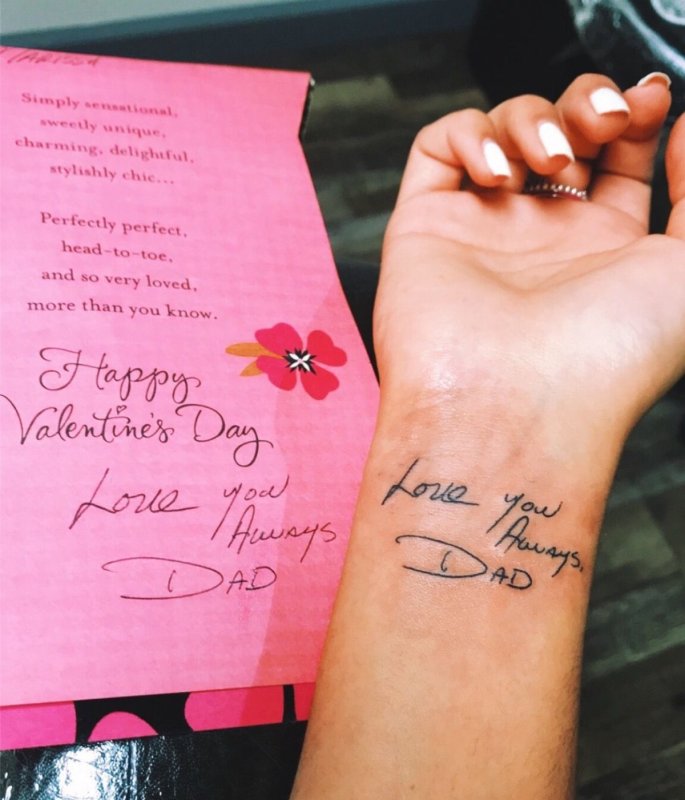 Simply sensational,
sweetly unique,
charming, delightful,
stylishly chic...
Perfectly perfect,
head-to-toe,
and so very loved,
more than you know.
Happy
Valentine's Day
Love you
Always
DAD
Love you
Always,
DAD